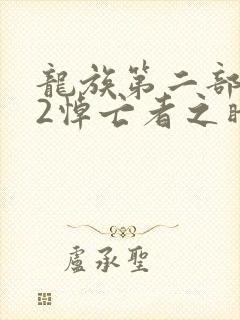 龍族第二部
2悼亡者之
盧承聖